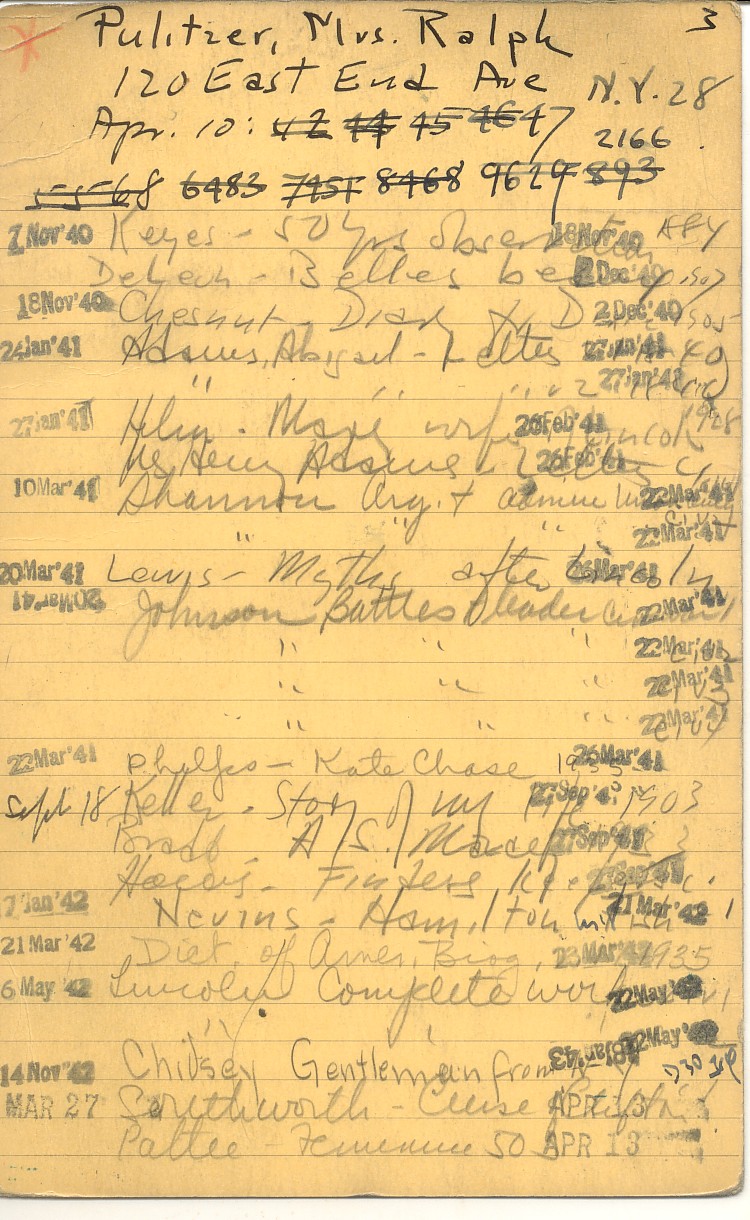 3
Pulitzer, Mrs. Ralph
120 East End Ave N.Y. 28
Apr. 10: 42 44 45 46 47 2166
5568 6483 7451 8468 9629 893
7 Nov '40 Keyes - 50 Yrs observation 18 Nov '40
DeLeon - Belles be 2 Dec '40 1907
18 Nov '40 Chesnut - Diary D 2 Dec '40 1905
24 Jan '41 Adams, Abigail - Letters 27 Jan '41 40
" " " v 2 27 Jan '41
27 Jan '41 Helm - Mary wife Lincoln 26 Feb '41 1928
Henry Adams - Letters 26 Feb '41
10 Mar '41 Shannon Org. + admin 22 Mar '41
" " " 22 Mar '41
20 Mar '41 Lewis - Myths after Lincoln 26 Mar '41
20 Mar '41 Johnson Battles & leader 22 Mar '41
" " " 22 Mar '41
" " " 22 Mar '41
" " " 22 Mar '41
22 Mar '41 Phelps - Kate Chase 26 Mar '41
Sept 18 Keller - Story of my life 27 Sep '41 1903
27 Sep '41
27 Sep '41
17 Jan '42 Nevins - Hamilton 21 Mar '42
21 Mar '42 Dict. of Amer. Biog. 23 Mar '42 1935
6 May '42 Lincoln Complete works 22 May '42 v1
" " 22 May '42
14 Nov '42 Chidsey Gentleman from 18 Jan '43
MAR 27 Southworth - APR 13
Pattee - Feminine 50 APR 13